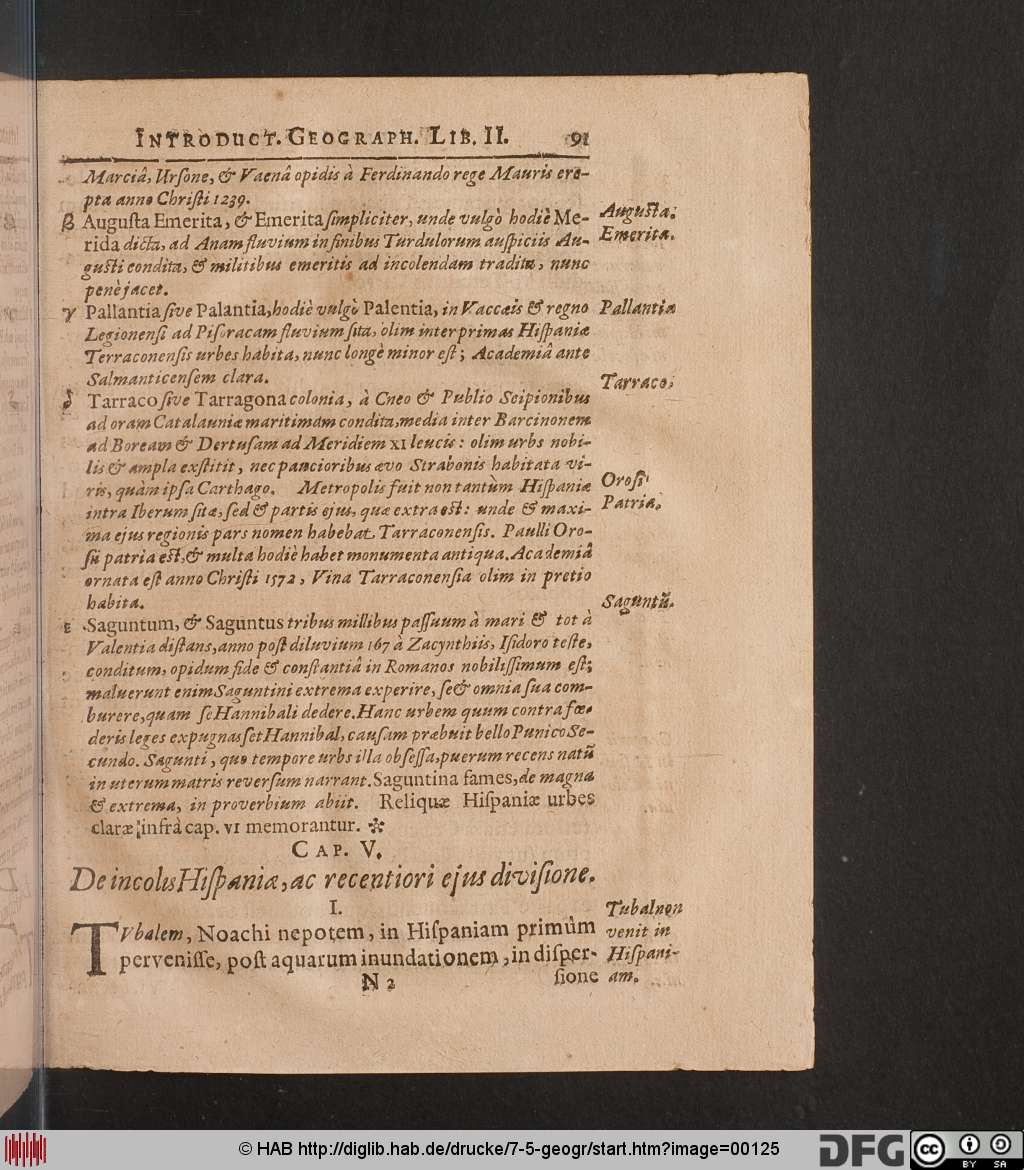 INTRODUCT. GEOGRAPH. LIB. II. 91
Marciâ, Urſone, & Vaenâ opidis à Ferdinando rege Mauris ere-
pta anno Chriſti 1239.
β Auguſta Emerita, & Emerita ſimpliciter, unde vulgò hodiè Me-
rida dicta, ad Anam fluvium in finibus Turdulorum auſpiciis Au-
guſti condita, & militibus emeritis ad incolendam tradita, nunc
penè jacet.
Auguſta
Emerita.
γ Pallantia ſive Palantia, hodiè vulgò Palentia, in Vaccæis & regno
Legionenſi ad Piſoracam fluvium ſita, olim inter primas Hiſpaniæ
Terraconenſis urbes habita, nunc longè minor eſt; Academiâ ante
Salmanticenſem clara.
Pallantia
δ Tarraco ſive Tarragona colonia, à Cneo & Publio Scipionibus
ad oram Catalauniæ maritimam condita, media inter Barcinonem
ad Boream & Dertuſam ad Meridiem XI leucis: olim urbs nobi-
lis & ampla exſtitit, nec paucioribus ævo Strabonis habitata vi-
ris, quàm ipſa Carthago. Metropolis fuit non tantùm Hiſpaniæ
intra Iberum ſitæ, ſed & partis ejus, quæ extra eſt: unde & maxi-
ma ejus regionis pars nomen habebat Tarraconenſis. Paulli Oro-
ſii patria eſt, & multa hodiè habet monumenta antiqua. Academiâ
ornata eſt anno Chriſti 1572, Vina Tarraconenſia olim in pretio
habita.
Tarraco.
Oroſii
Patria.
ε Saguntum, & Saguntus tribus millibus paſſuum à mari & tot à
Valentia diſtans, anno poſt diluvium 167 à Zacynthiis, Iſidoro teſte,
conditum, opidum fide & conſtantiâ in Romanos nobiliſſimum eſt;
maluerunt enim Saguntini extrema experire, ſe & omnia ſua com-
burere, quam ſe Hannibali dedere. Hanc urbem quum contra fœ-
deris leges expugnaſſet Hannibal, cauſam præbuit bello Punico Se-
cundo. Sagunti, quo tempore urbs illa obſeſſa, puerum recens natũ
in uterum matris reverſum narrant. Saguntina fames, de magna
& extrema, in proverbium abiit. Reliquæ Hiſpaniæ urbes
claræ infrà cap. VI memorantur. ✲
Saguntũ.
CAP. V.
De incolis Hiſpaniæ, ac recentiori ejus diviſione.
I.
TVbalem, Noachi nepotem, in Hiſpaniam primùm
perveniſſe, poſt aquarum inundationem, in diſper-
N 2 ſione
Tubal non
venit in
Hiſpani-
am.
© HAB http://diglib.hab.de/drucke/7-5-geogr/start.htm?image=00125
DFG
cc
BY SA